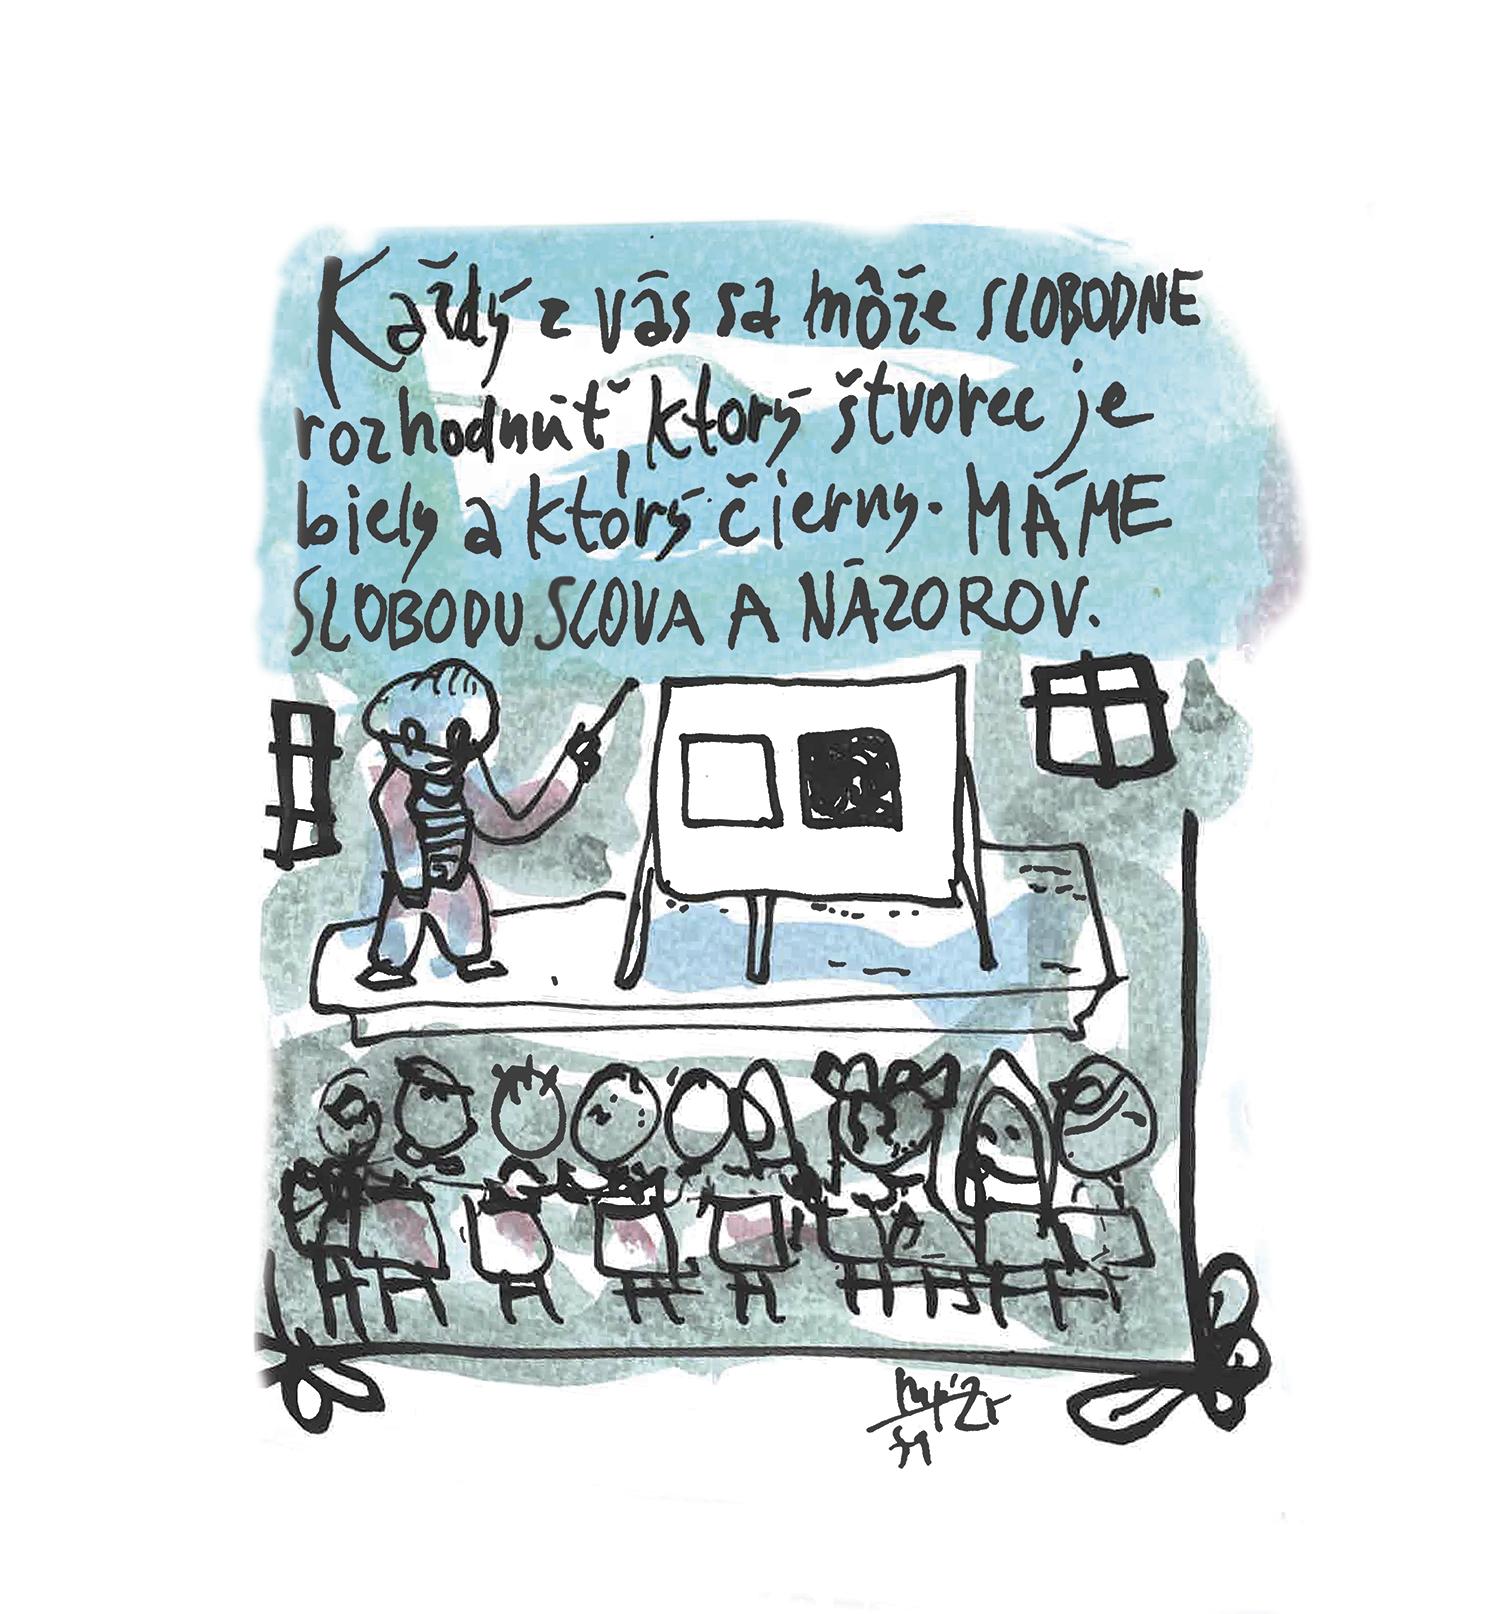 Každý z vás sa môže SLOBODNE
rozhodnúť, ktorý štvorec je
biely a ktorý čierny. MÁME
SLOBODU SLOVA A NÁZOROV.